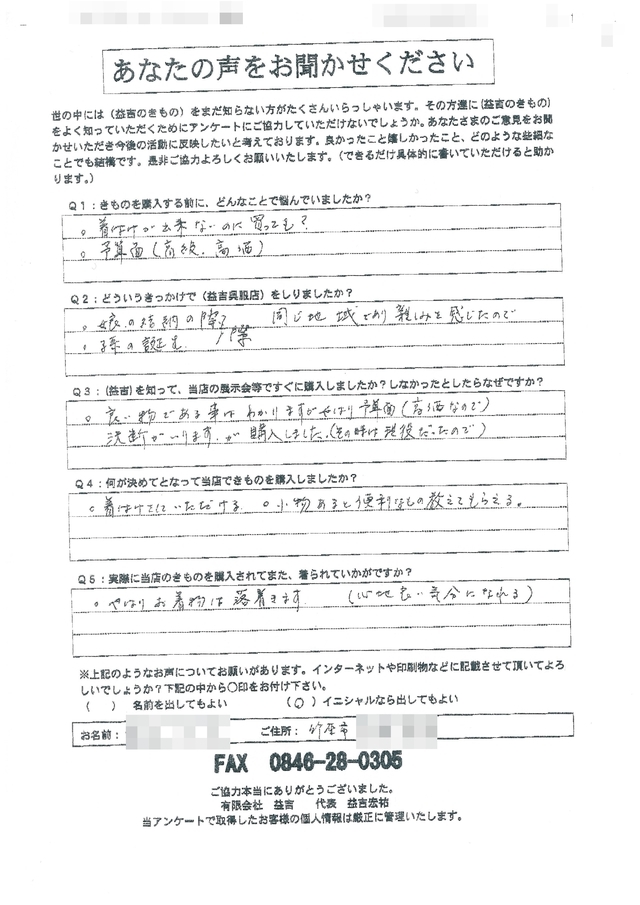 あなたの声をお聞かせください
世の中には(益吉のきもの)をまだ知らない方がたくさんいらっしゃいます。その方達に(益吉のきもの)
をよく知っていただくためにアンケートにご協力していただけないでしょうか。あなたさまのご意見をお聞
かせいただき今後の活動に反映したいと考えております。良かったこと嬉しかったこと、どのような些細な
ことでも結構です。是非ご協力よろしくお願いいたします。(できるだけ具体的に書いていただけると助か
ります。)
Q1:きものを購入する前に、どんなことで悩んでいましたか?
。着付けが出来ないのに買っても?
。予算面(高級、高価)
Q2:どういうきっかけで(益吉呉服店)をしりましたか?
。娘の結納の際 同じ地域であり親しみを感じたので
。孫の誕生 際
Q3:(益吉)を知って、当店の展示会等ですぐに購入しましたか?しなかったとしたらなぜですか?
。良い物である事はわかりますがやはり予算面(高価なので)
決断がいりますが購入しました。(その時は現役だったので)
Q4:何が決めてとなって当店できものを購入しましたか?
。着付けをしていただける 。小物あると便利なもの教えてもらえる。
Q5:実際に当店のきものを購入されてまた、着られていかがですか?
。やはりお着物は落着きます (心地良い気分になれる)
※上記のようなお声についてお願いがあります。インターネットや印刷物などに記載させて頂いてよろ
しいでしょうか?下記の中から○印をお付け下さい。
( ) 名前を出してもよい (○) イニシャルなら出してもよい
お名前: ご住所: 竹原市
FAX 0846-28-0305
ご協力本当にありがとうございました。
有限会社 益吉 代表 益吉宏祐
当アンケートで取得したお客様の個人情報は厳正に管理いたします。